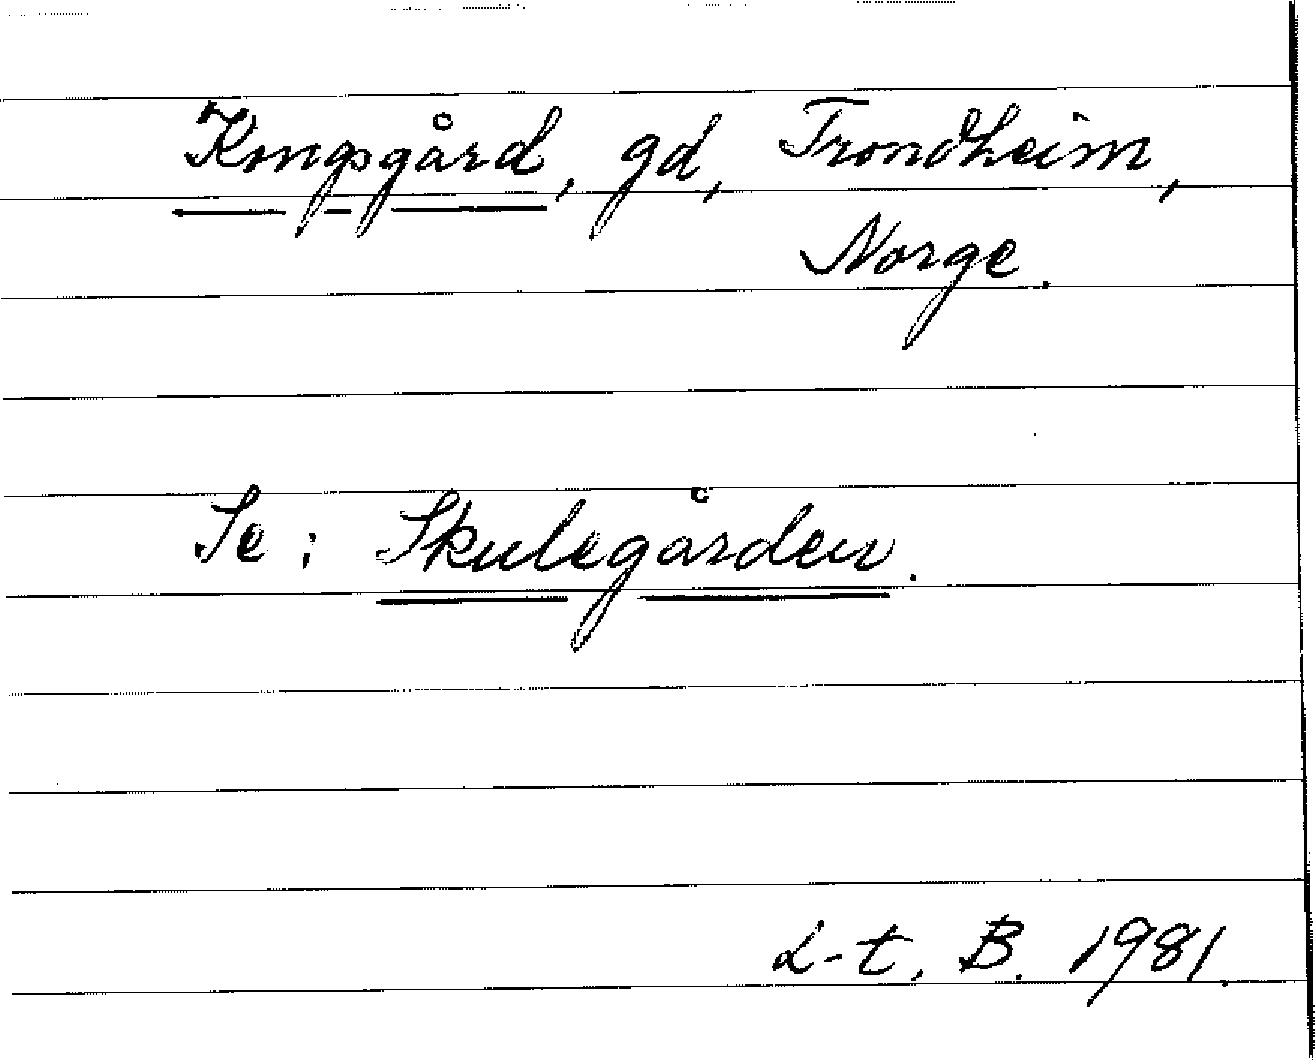 Kongsgård, gd, Trondheim,
Norge.
Se: Skulegården.
L-t. B. 1981.